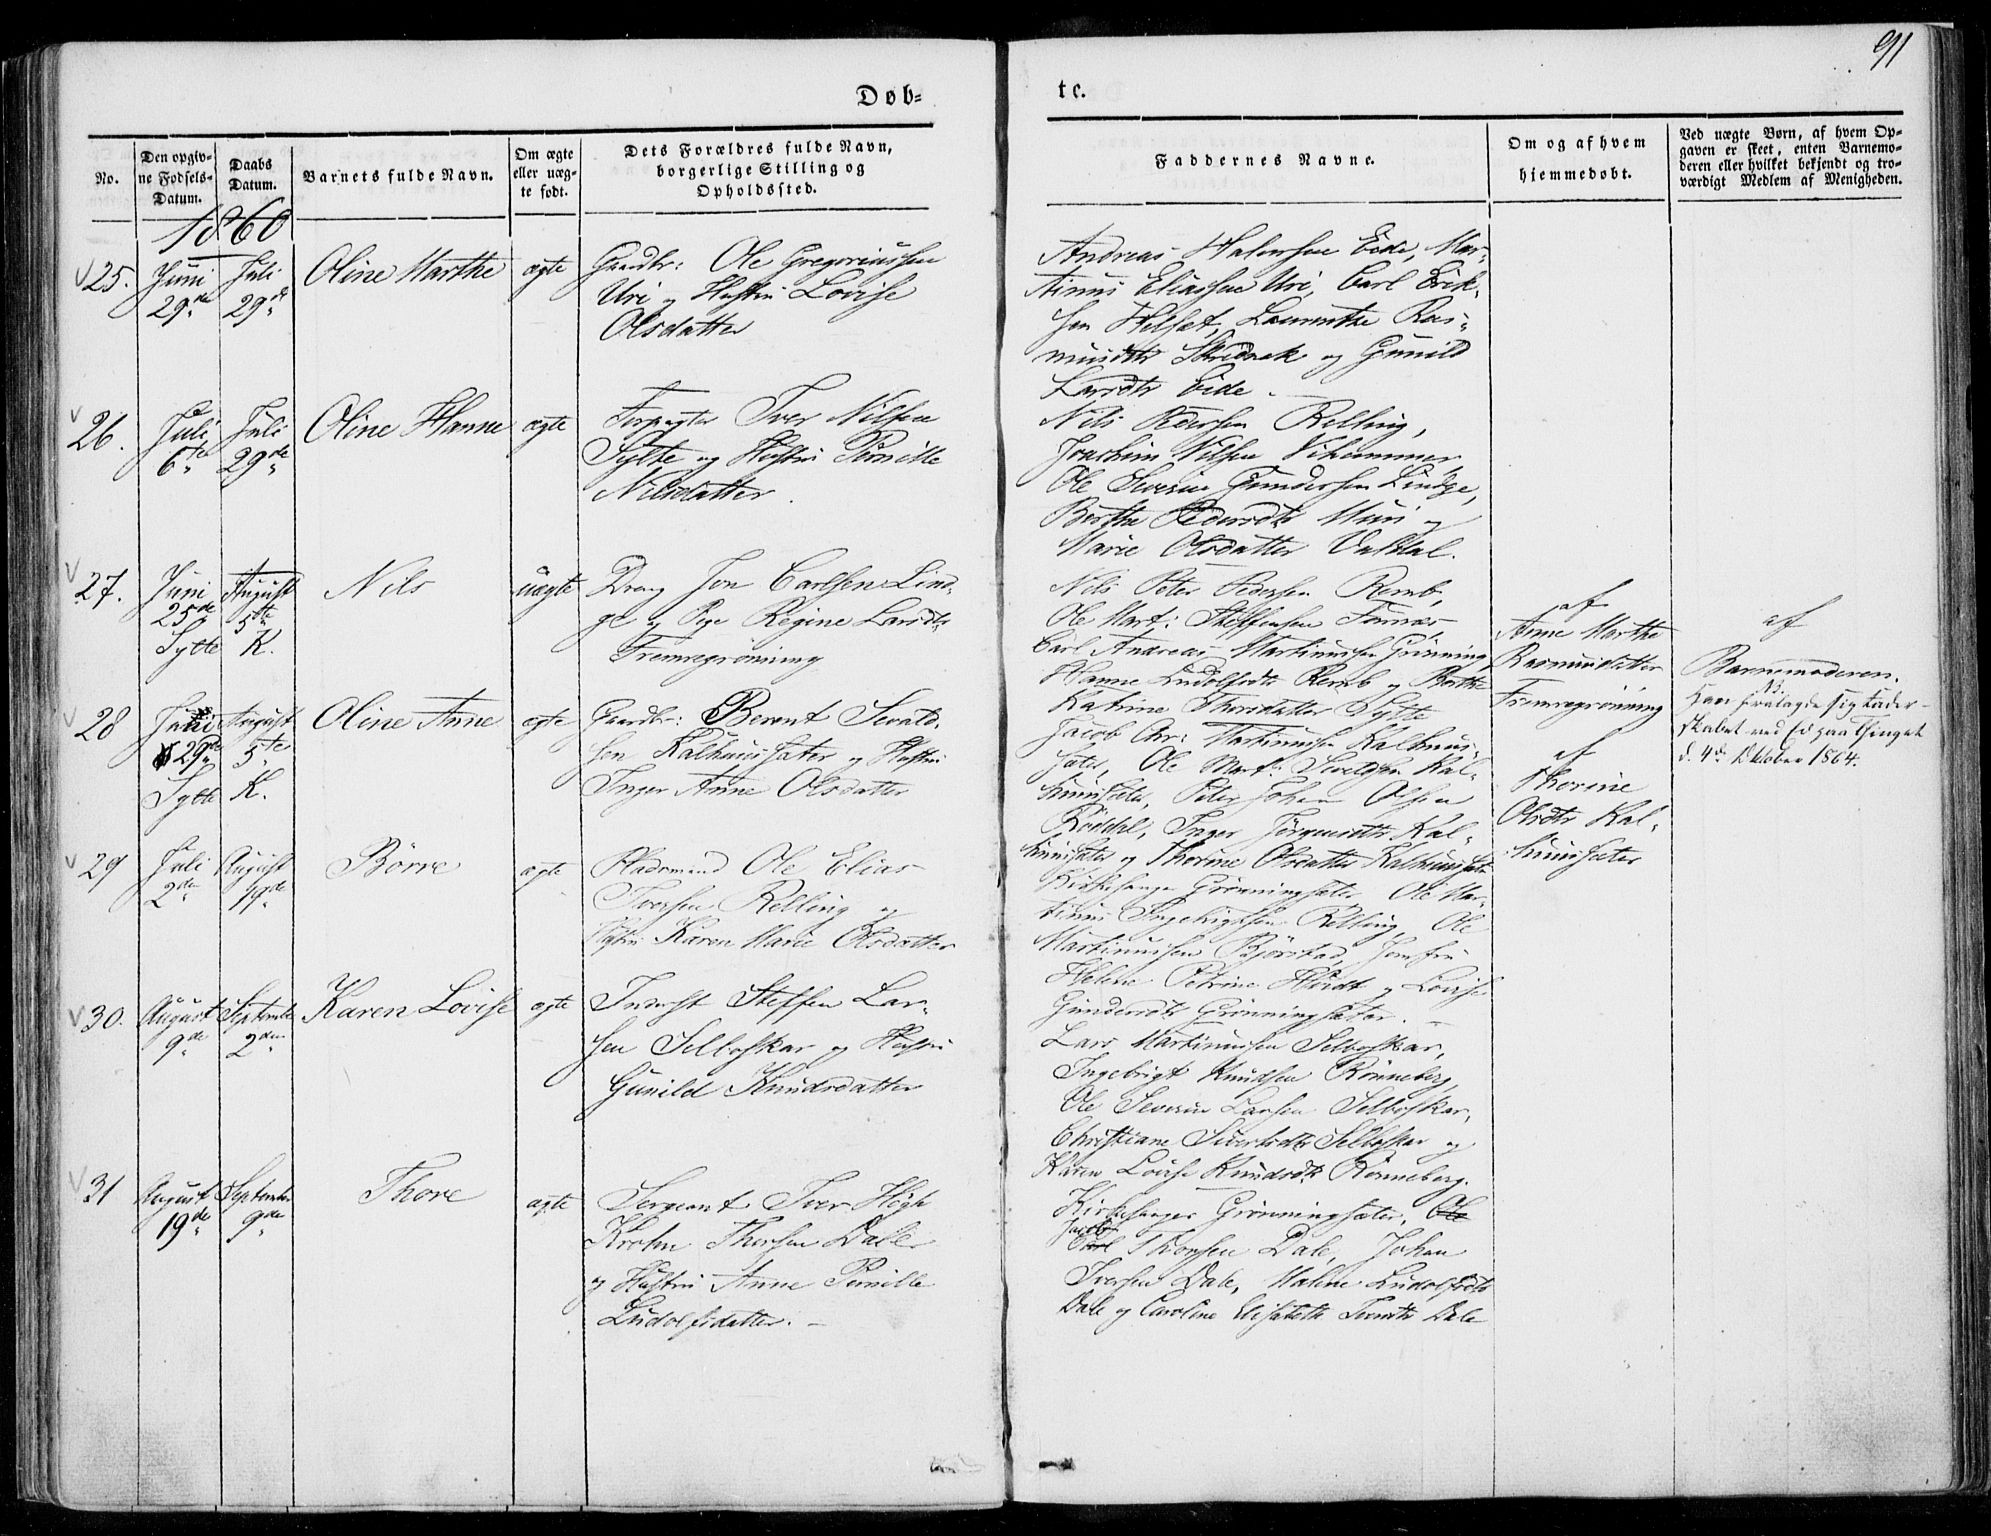 91
Døb-
te.
No.
Den opgiv-
ne Fødsels-
Datum.
Daabs
Datum.
Barnets fulde Navn.
Om ægte
eller uæg-
te født.
Dets Forældres fulde Navn,
borgerlige Stilling og
Opholdssted.
Faddernes Navne.
Om og af hvem
hjemmedøbt.
Ved uægte Børn, af hvem Op-
gaven er skeet, enten Barnemo-
deren eller hvilket bekjendt og tro-
værdigt Medlem af Menigheden.
1860
25.
Juni
29de
Juli
29de
Oline Marthe
ægte
Gaardbr: Ole Gregoriussen
Uri og Hustru Lovise
Olsdatter
Andreas Halvorsen Eide, Mar-
tinus Eliassen Uri, Carl Erik-
sen Helset, Laurentse Ras-
musdtr Skrednak og Gunild
Larsdtr Eide.
26.
Juli
6te
Juli
29de
Oline Hanne
ægte
Forpagter Iver Nilsen
Sylte og Hustru Pernille
Nilsdatter.
Nils Pedersen Relling,
Joachim Nilsen Vihammer
Ole Severin Gundersen Lindge,
Berthe Pedersdtr Muri og
Marie Olsdatter Valdal.
27.
Juni
25de
Sylte
August
5te
K.
Nils
uægte
Drang Jon Carlsen Lind-
ge og Pige Regine Larsdtr
Fremregrønning
Nils Peter Pedersen Remb,
Ole Mart: Steffensen
Carl Andreas Martinussen Grønning,
Hanne Ludolfsdtr Remb og Berthe
Katrine Thorsdatter Sylte
af
Anne Marthe
Rasmusdatter
Fremregrønning
af
Barnemoderen.
Han fralagde sig Fader-
skabet ved Ed paa Thinget
d. 4de Oktober 1864.
28
Juli
29de
Sylte
August
5te
K.
Oline Anne
ægte
Gaardbr: Berent Sevald-
sen Kalhussæter og Hustru
Inger Anne Olsdatter
Jacob Chr: Martinussen Kalhus-
sæter, Ole Mart: Sevaldsen Kal-
husssæter, Peter Johan Olsen
Røddal, Inger Jørgensdtr Kal-
hussæter og Thorine Olsdatter Kalhussæter
af
Thorine
Olsdtr Kal-
hussæter
29
Juli
2den
August
19de
Børre
ægte
Pladsmand Ole Elias
Iversen Relling og
Hustru Karen Marie Olsdatter
Kirkesanger Grønningsæter, Ole Mar-
tinus Ingebrigtsen Relling, Ole
Martinussen Bjørstad, Jomfru
Helene Petrine Hvidt og Lovise
Gundersdtr Grønningsæter.
30.
August
9de
September
2den
Karen Lovise
ægte
Inderst Steffen Lar-
sen Selboskar og Hustru
Gunild Knudsdatter
Lars Martinussen Selboskar,
Ingebrigt Knudsen Rønneberg,
Ole Severin Larsen Selboskar,
Christiane Sivertsdtr Selboskar og
Karen Lovise Knudsdtr Rønneberg.
31
August
19de
September
9de
Thore
ægte
Sergeant Iver Høgh
Krohn Thorsen Dale
og Hustru Anne Pernille
Ludolfsdatter.
Kirkesanger Grønningsæter, Ole
Jacob
Carl Thorsen Dale, Johan
Iversen Dale, Maline Ludolfsdtr
Dale og Caroline Elisabeth Iversdtr Dale